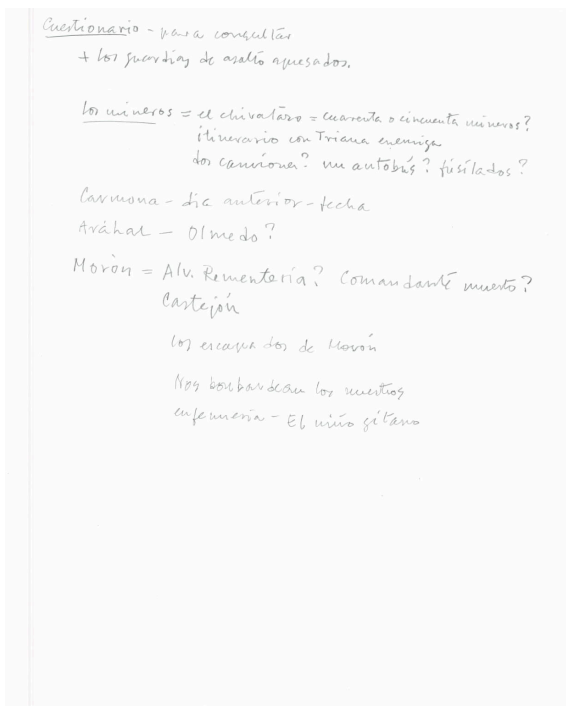 Cuestionario - para consultar
+ los guardias de asalto apresados.
Los mineros = el chivatazo = cuarenta o cincuenta mineros?
itinerario con Triana enemiga
dos camiones? un autobús? fusilados?
Carmona - día anterior - fecha
Aráhal - Olmedo?
Morón = Alv. Rementería? Comandante muerto?
Castejón
los escapados de Morón
Nos bombardean los nuestros
enfermería - El niño gitano